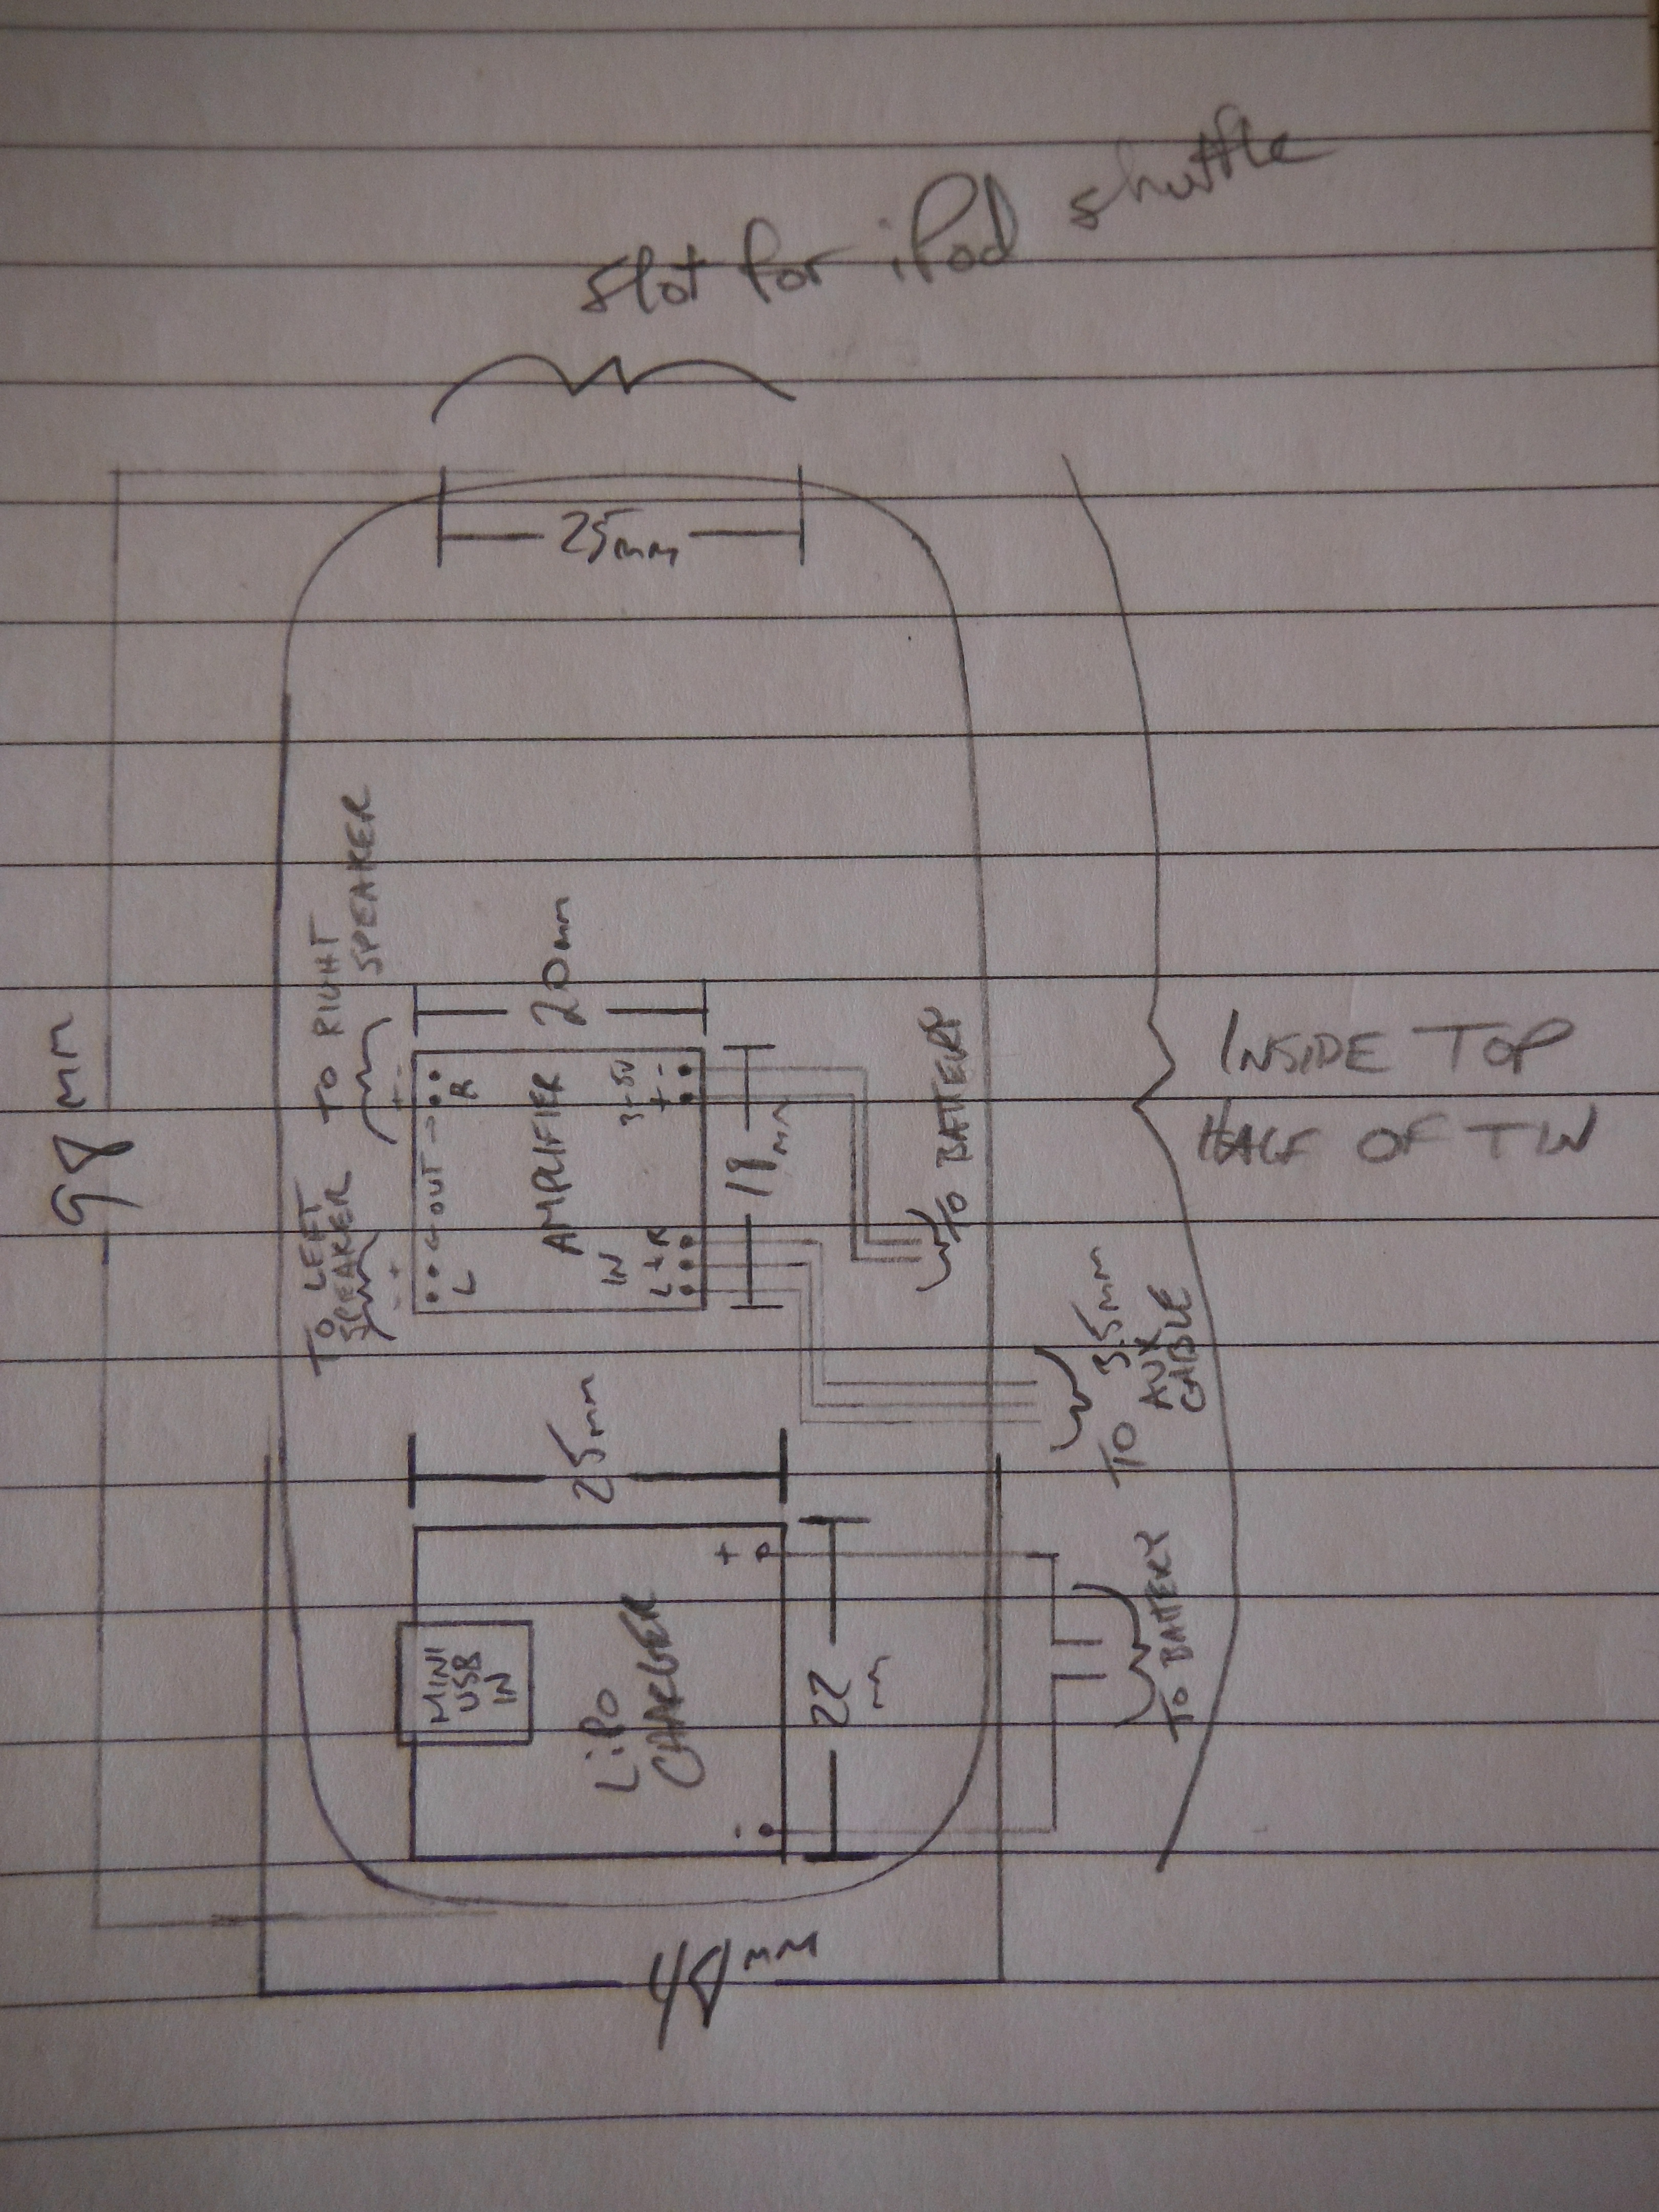 slot for iPod shuffle
25mm
98 mm
TO RIGHT
SPEAKER
TO LEFT
SPEAKER
+ -
- +
L OUT R
AMPLIFIER
IN
L + R
3-5V
+ -
20mm
TO BATTERY
TO 3.5mm
AUX
CABLE
25mm
MINI
USB
IN
LiPo
CHARGER
- +
22
m
TO BATTERY
48mm
INSIDE TOP
HALF OF TIN